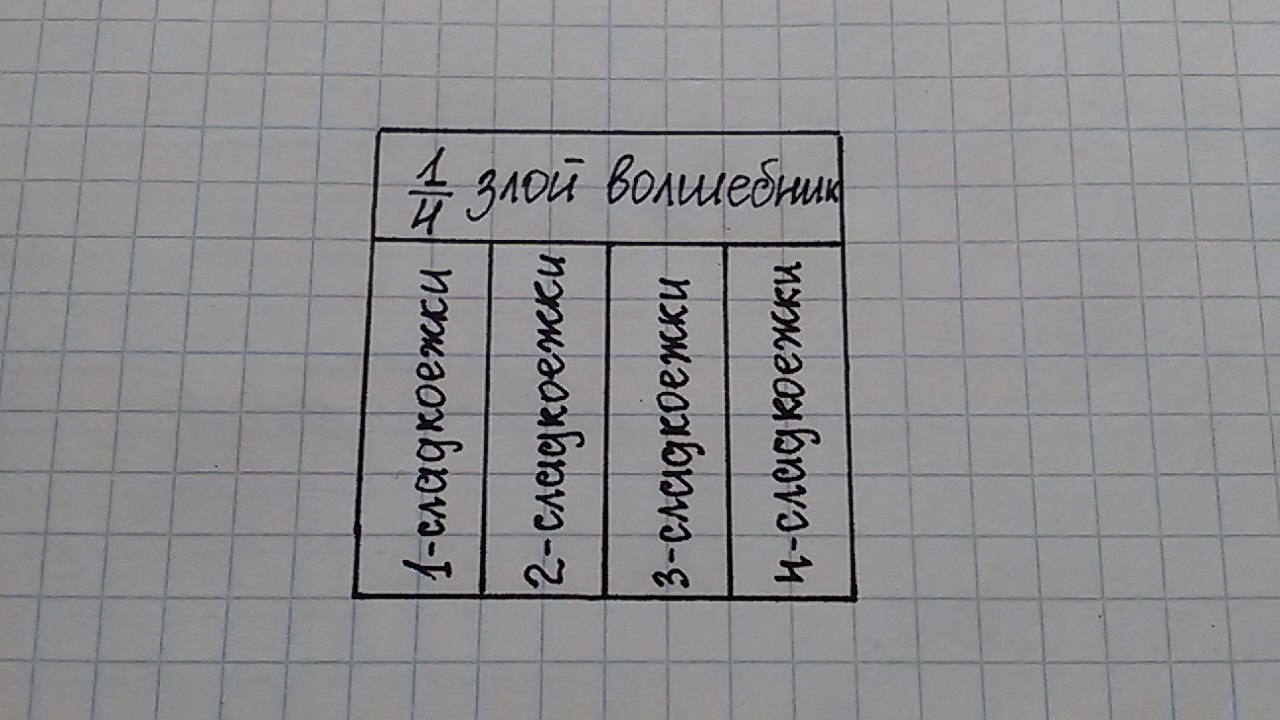 1/4 злой волшебник
1-сладкоежки
2-сладкоежки
3-сладкоежки
4-сладкоежки